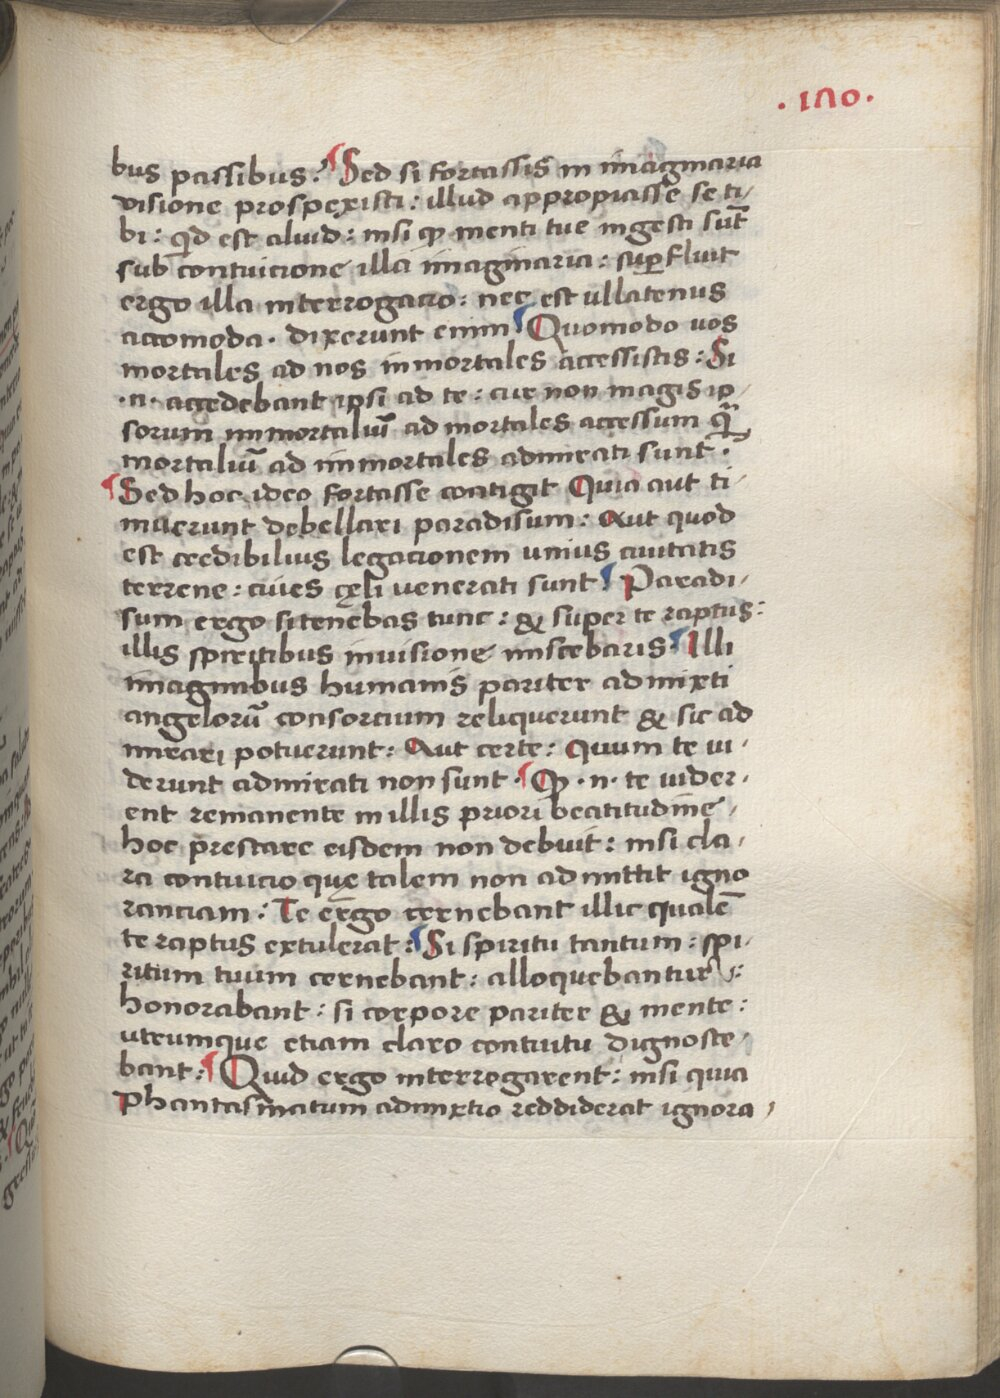 .170.
bus passibus? Sed si fortassis in imaginaria
visione prospexisti: illud appropiasse se ti-
bi: qd est aliud: nisi ꝙ menti tue ingesti sūt
sub contuicione illa imaginaria: suꝑfluit
ergo illa interrogacio: nec est ullatenus
accomoda. dixerunt enim Quomodo vos
mortales ad nos inmortales accessistis: Si
.n. accedebant ipsi ad te: cur non magis ip-
sorum immortaliū ad mortales accessum q̄
mortaliū ad immortales admirati sunt.
Sed hoc ideo fortasse cōtigit Quia aut ti-
muerunt debellari paradisum: Aut quod
est credibilius legacionem unius civitatis
terrene: cives cęli venerati sunt Paradi-
sum ergo si tenebas tunc: & super te raptus:
illis spiritibus in visione miscebaris: Illi
imaginibus humanis pariter admixti
angelorū consortium reliquerunt & sic ad
mirari potuerunt: Aut certe: Quum te vi-
derunt admirati non sunt. Ꝙ .n. te vider-
ent remanente in illis priori beatitudine-
hoc prestare eisdem non debuit: nisi cla-
ra contuicio quę talem non admittit igno
ranciam: Te ergo cernebant illic qualē
te raptus extulerat: Si spiritu tantum: spi-
ritum tuum cernebant: alloquebantur:
honorabant: si corpore pariter & mente:
utrumque etiam claro contuitu dignosce-
bant: Quid ergo interrogarent: nisi quia
phantasmatum admixtio reddiderat ignora-